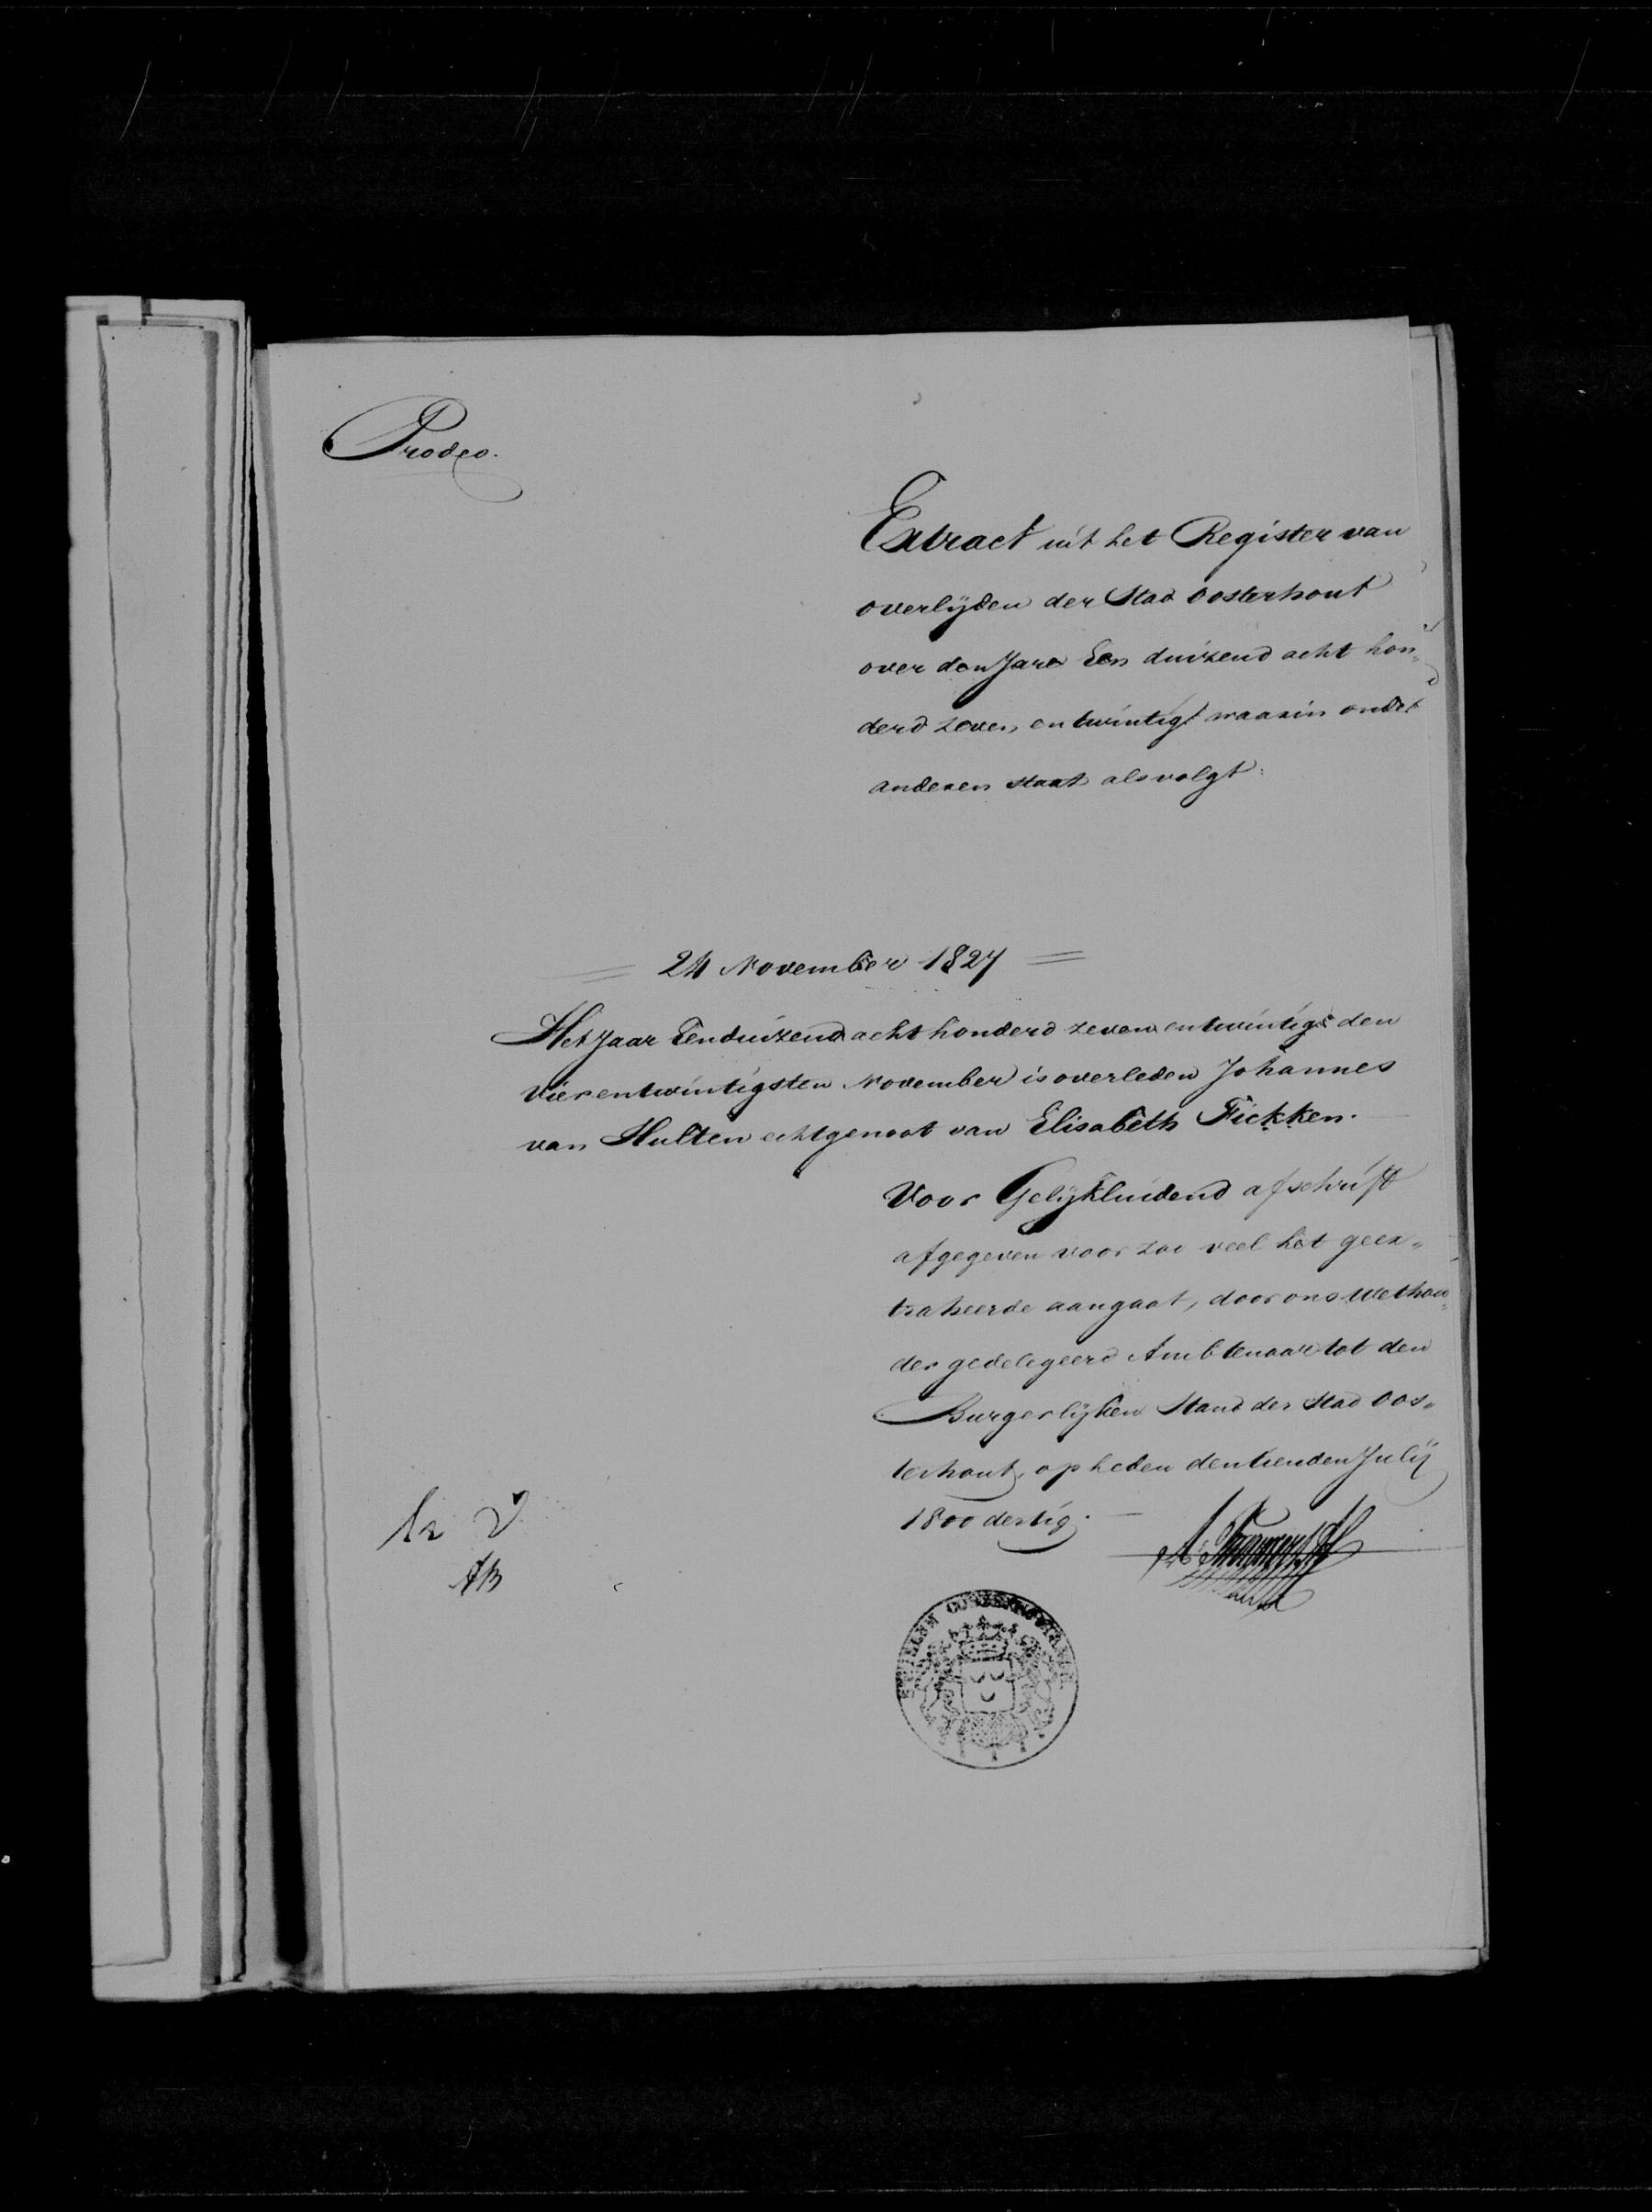 Prodeo.
Extract uit het Register van
overlijden der Stad Oosterhout
over den Jare Een duizend acht hon„
derd zeven en twintig waarin onder
anderen staat als volgt:
24 November 1827
Het Jaar Eenduizend acht honderd zeven en twintig den
vier en twintigsten November is overleden Johannes
van Hulten echtgenoot van Elisabeth Fickken.
Voor Gelijkluidend afschrift
afgegeven voor zoo veel het geex„
traheerde aangaat, door ons Wethou„
der gedelegeerd Ambtenaar tot den
Burgerlijken Stand der Stad Oos„
terhout, op heden den tienden Julij
1800 dertig.